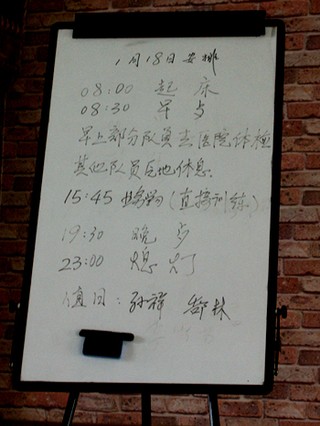 1月18日安排
08:00 起床
08:30 早点
早上部分队员去医院体检
其他队员驻地休息
15:45 出发 (直接训练)
19:30 晚点
23:00 熄灯
值日: 孙祥 郜林